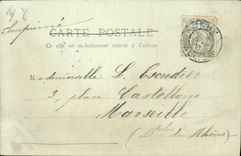 Imprimé
CARTE POSTALE
Ce côté est exclusivement réservé à l'adresse
Mademoiselle L. Escudier
3, place Castellane
Marseille
(Bches du Rhône)